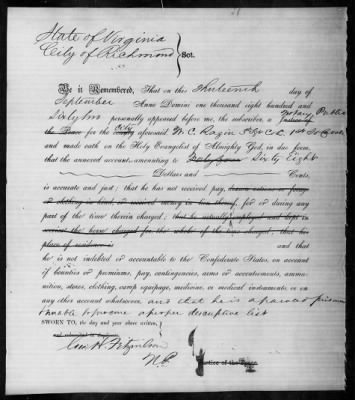 State of Virginia
City of Richmond } Sct.
Be it Remembered, That on the thirteenth day of
September Anno Domini one thousand eight hundred and
Sixty two personally appeared before me, the subscriber, a Notary Public
Justice of
the Peace for the City aforesaid W. C. 1st So Car
and made oath on the Holy Evangelist of Almighty God, in due form,
that the annexed account amounting to Sixty Eight
Dollars and Cents,
is accurate and just; that he has not received pay, drawn rations or forage
or clothing in kind, or received money in lieu thereof, for or during any
part of the time therein charged; that he actually employed and kept in
service the horse charged for the whole of the time charged; that his
place of residence is and that
he is not indebted or accountable to the Confederate States, on account
of bounties or premiums, pay, contingencies, arms or accoutrements, ammu-
nition, stores, clothing, camp equipage, medicine, or medical instruments, or on
any other account whatsoever and that he is a paroled prisoner
& unable to procure a proper descriptive list
SWORN TO, the day and year above written,
and subscribed in duplicate
Geo. H.
N.P. Justice of the Peace